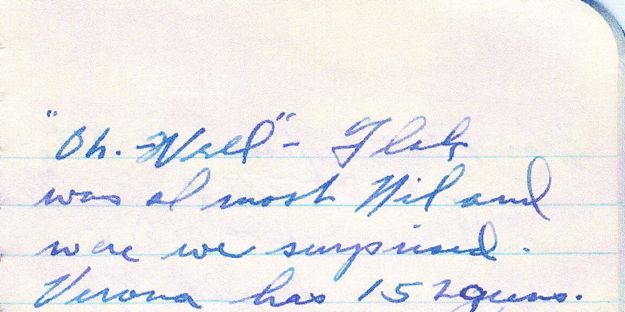 "Oh. Well" - Flak
was almost Nil and
were we surprised.
Verona has 152 guns.